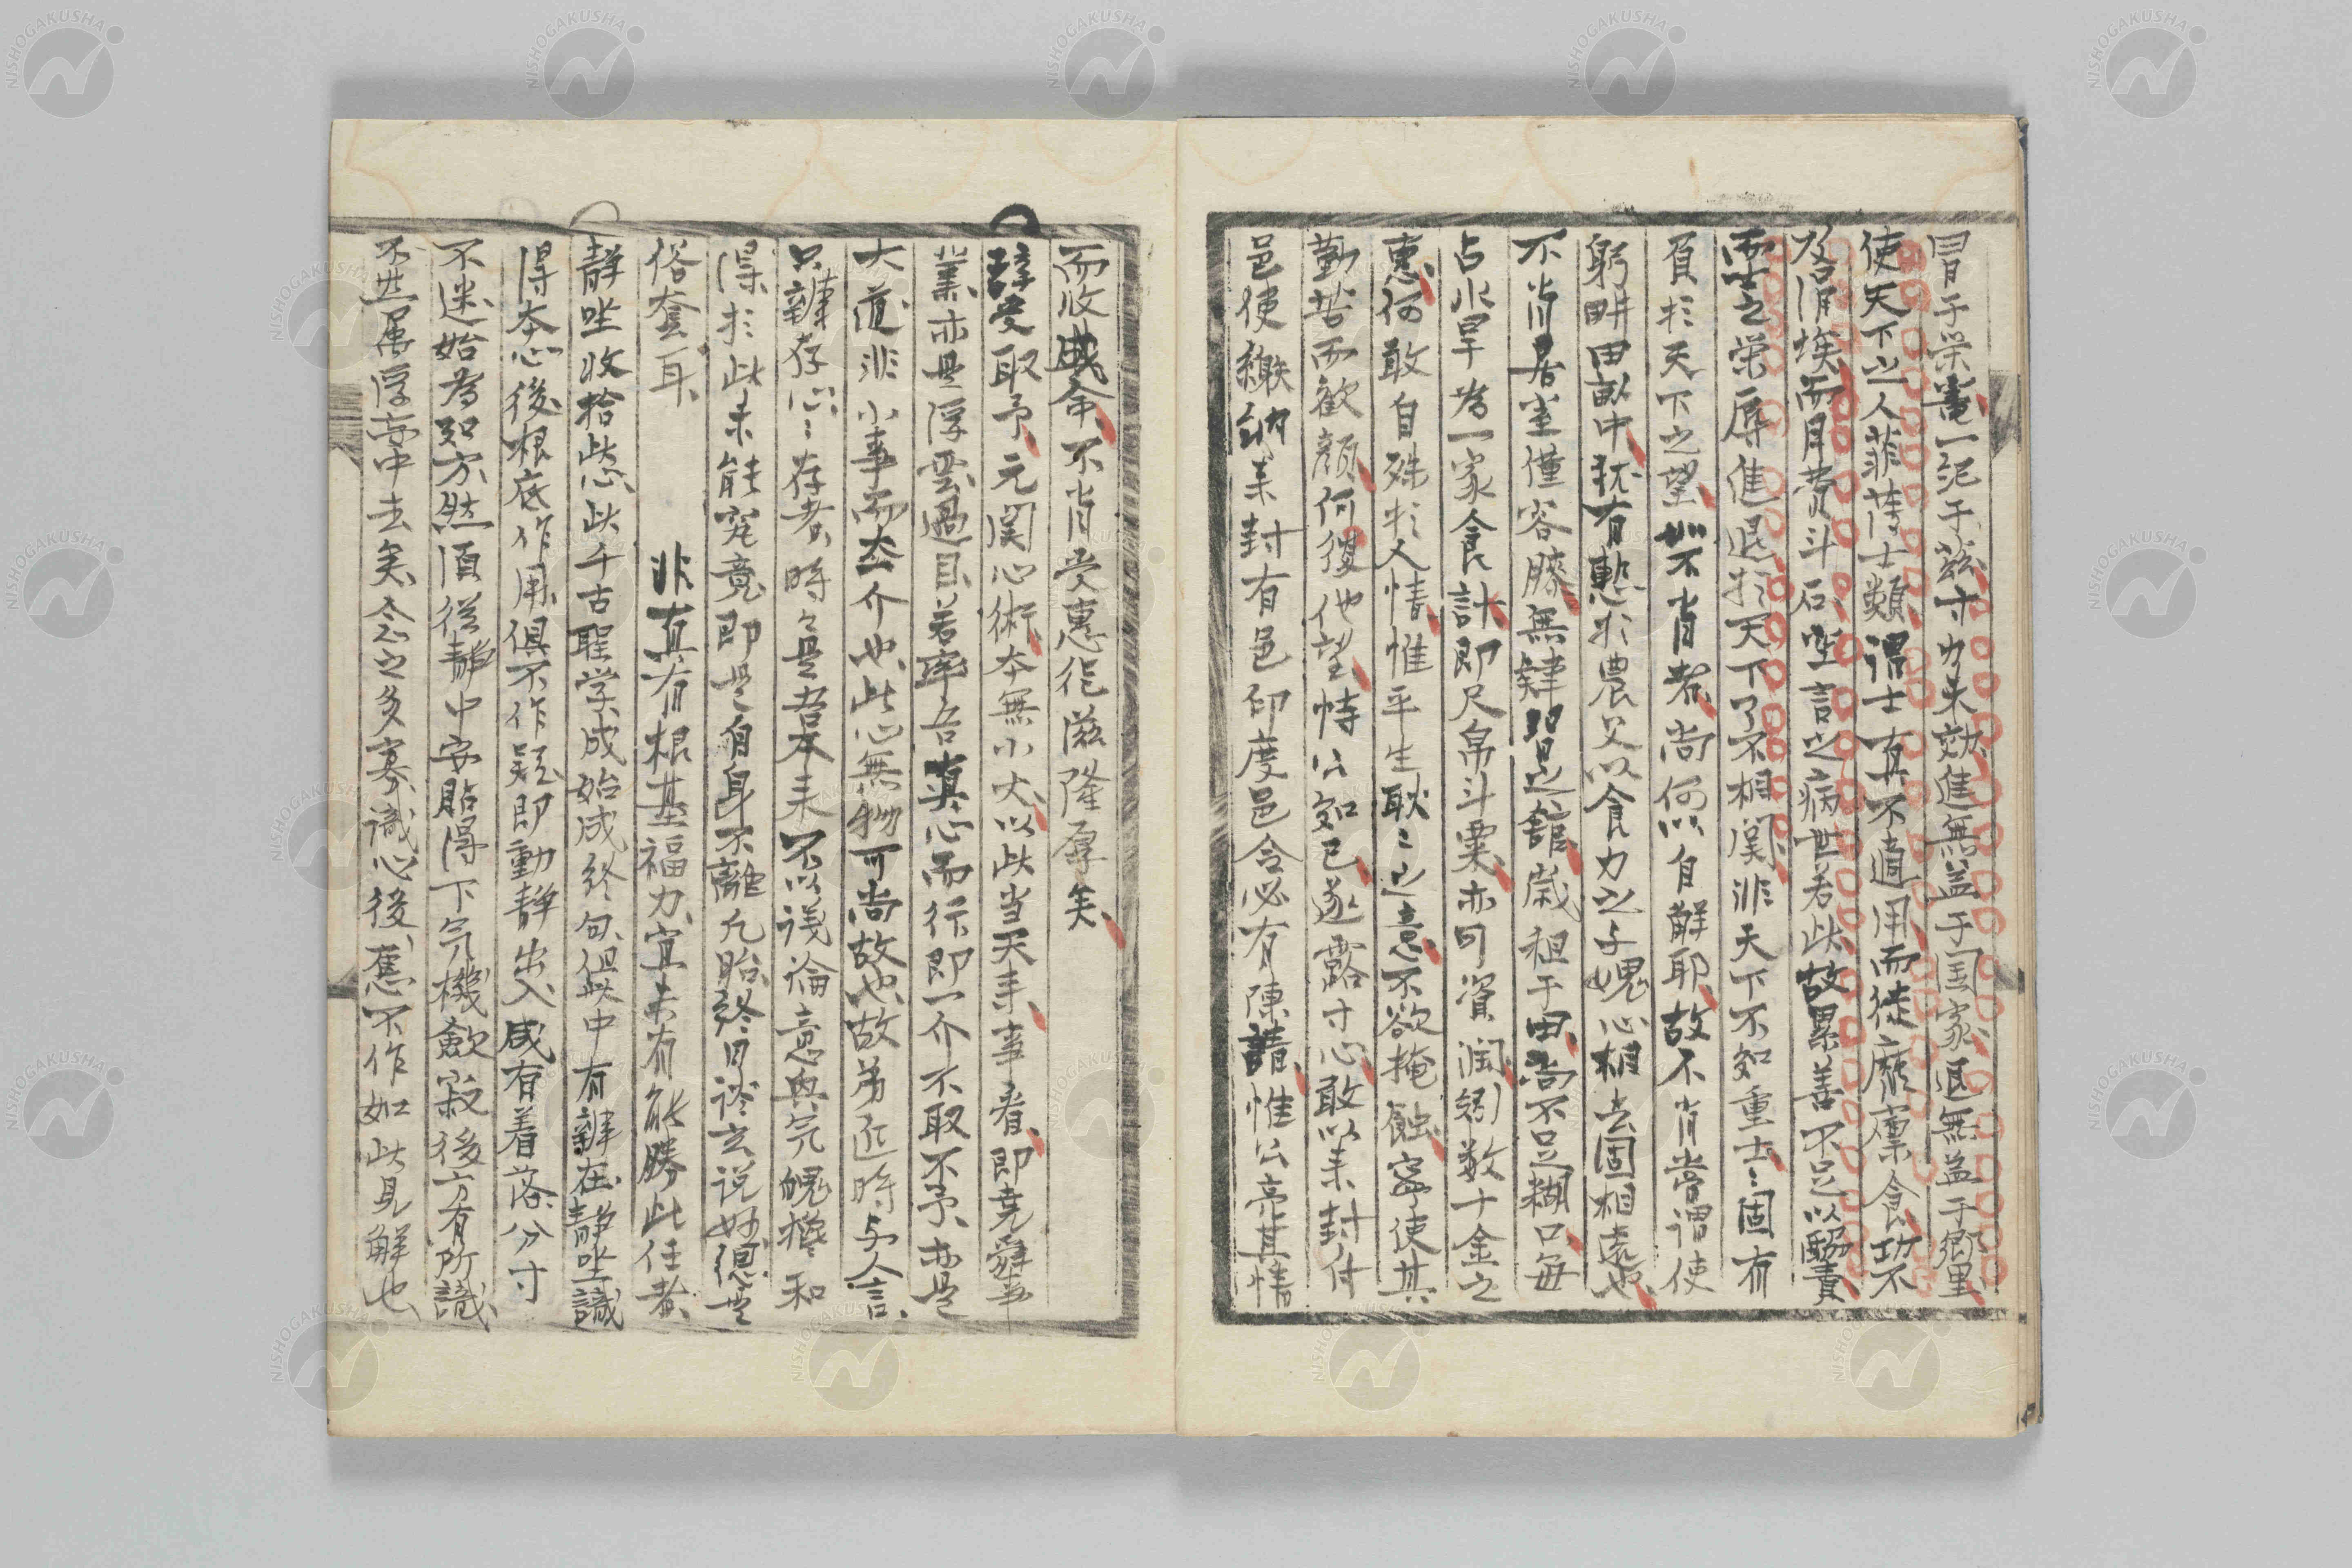 冒于栄竜一絶于茲寸力未効進無益于国家退無益于郷里
使天下之人菲薄士類謂士真不適用而徒靡廩食功不
及涓埃而月費斗石空言之病世若此故累善不足以酬責
而士之栄辱進退於天下了不相関非天下不知重士〻固有
負於天下之望如不肖者尚何以自解耶故不肖嘗謂使
躬畊田畝中猶有慙於農父以食力之子媿心相去固相遠也
不肖居室僅容膝無肆習之館歳租于田尚不足糊口毎
占水旱為一家食計即尺帛斗粟亦可資潤矧数十金之
恵何敢自殊於人情惟平生耿〻之意不欲掩蝕寧使其
勤苦而歓顔何復他望恃公知已遂露寸心敢以来封付
邑使繳納来封有邑印度邑令必有陳請惟公亮其情
而收成命不肖受恵従滋隆厚矣
辞受取予元関心術本無小大以此当天来事看即尭舜事
業亦是浮雲過目若率吾真心而行即一介不取不予亦是
大道非小事而太一介也此心無物可尚故也故弟近時与人言
只辨存心〻存者時〻是吾本来不以議論意興気魄攙和
得於此未能究竟即是自身不離凡胎終日談玄説妙總是
俗套耳
非真有根基福力宜未有能勝此任者
静坐收拾此心此千古聖学成始成終句但此中有辨在静坐識
得本心後根底作用俱不作疑即動静出入咸有着落分寸
不迷始為知方然須従静中安貼得下気機歛寂後方有所識
不然属浮妄中去矣念之多寡識心後應不作如此見解也